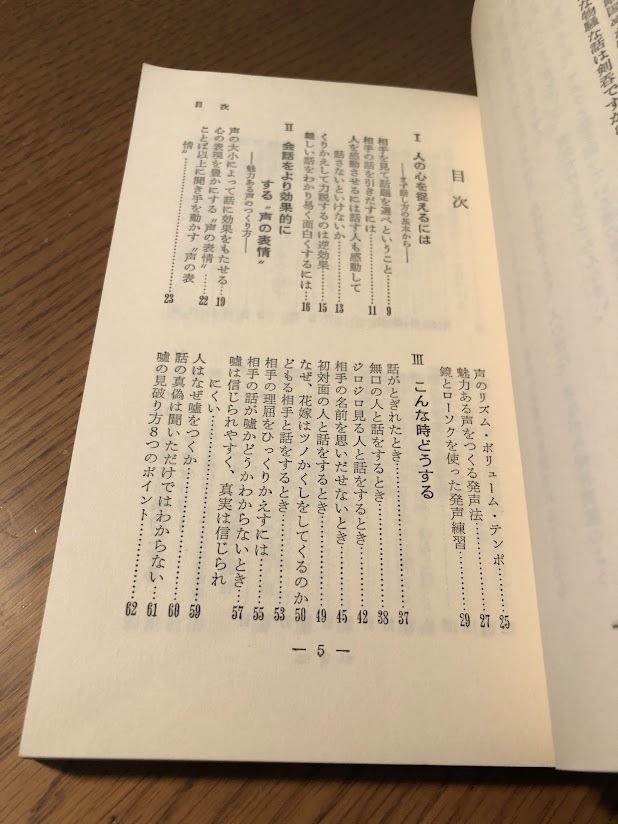 な物騒な話は剣呑ですが
目次
I 人の心を捉えるには
――まず話し方の基本から――
相手を見て話題を選べということ……9
相手の話を引きだすには……11
人を感動させるには話す人も感動して
話さないといけないか……13
くりかえして力説するのは逆効果……15
難しい話をわかり易く面白くするには……16
II 会話をより効果的に
する〝声の表情〟
――魅力ある声のつくり方――
声の大小によって話に効果をもたせる……19
心の表現を豊かにする〝声の表情〟……22
ことば以上に聞き手を動かす〝声の表
情〟……23
声のリズム・ボリューム・テンポ……25
魅力ある声をつくる発声法……27
鏡とローソクを使った発声練習……29
III こんな時どうする
話がとぎれたとき……37
無口の人と話をするとき……38
ジロジロ見る人と話をするとき……42
相手の名前を思いだせないとき……45
初対面の人と話をするとき……49
なぜ、花嫁はツノかくしをしてくるのか……50
どもる相手と話をするとき……53
相手の理屈をひっくりかえすには……55
相手の話が嘘かどうかわからないとき……57
嘘は信じられやすく、真実は信じられ
にくい……59
人はなぜ嘘をつくか……60
話の真偽は聞いただけではわからない……61
嘘の見破り方8つのポイント……62
目次
― 5 ―